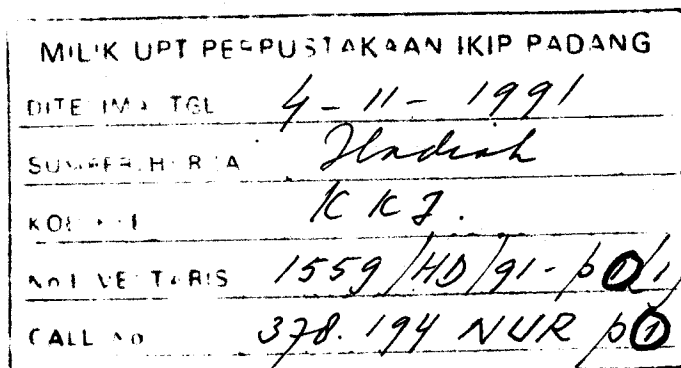 MILIK UPT PERPUSTAKAAN IKIP PADANG
DITERIMA TGL 4-11-1991
SUMBER/HARGA Hadiah
KOLEKSI KKI.
No INVENTARIS 1559/HD/91-p①/1
CALL No 378.194 NUR p①